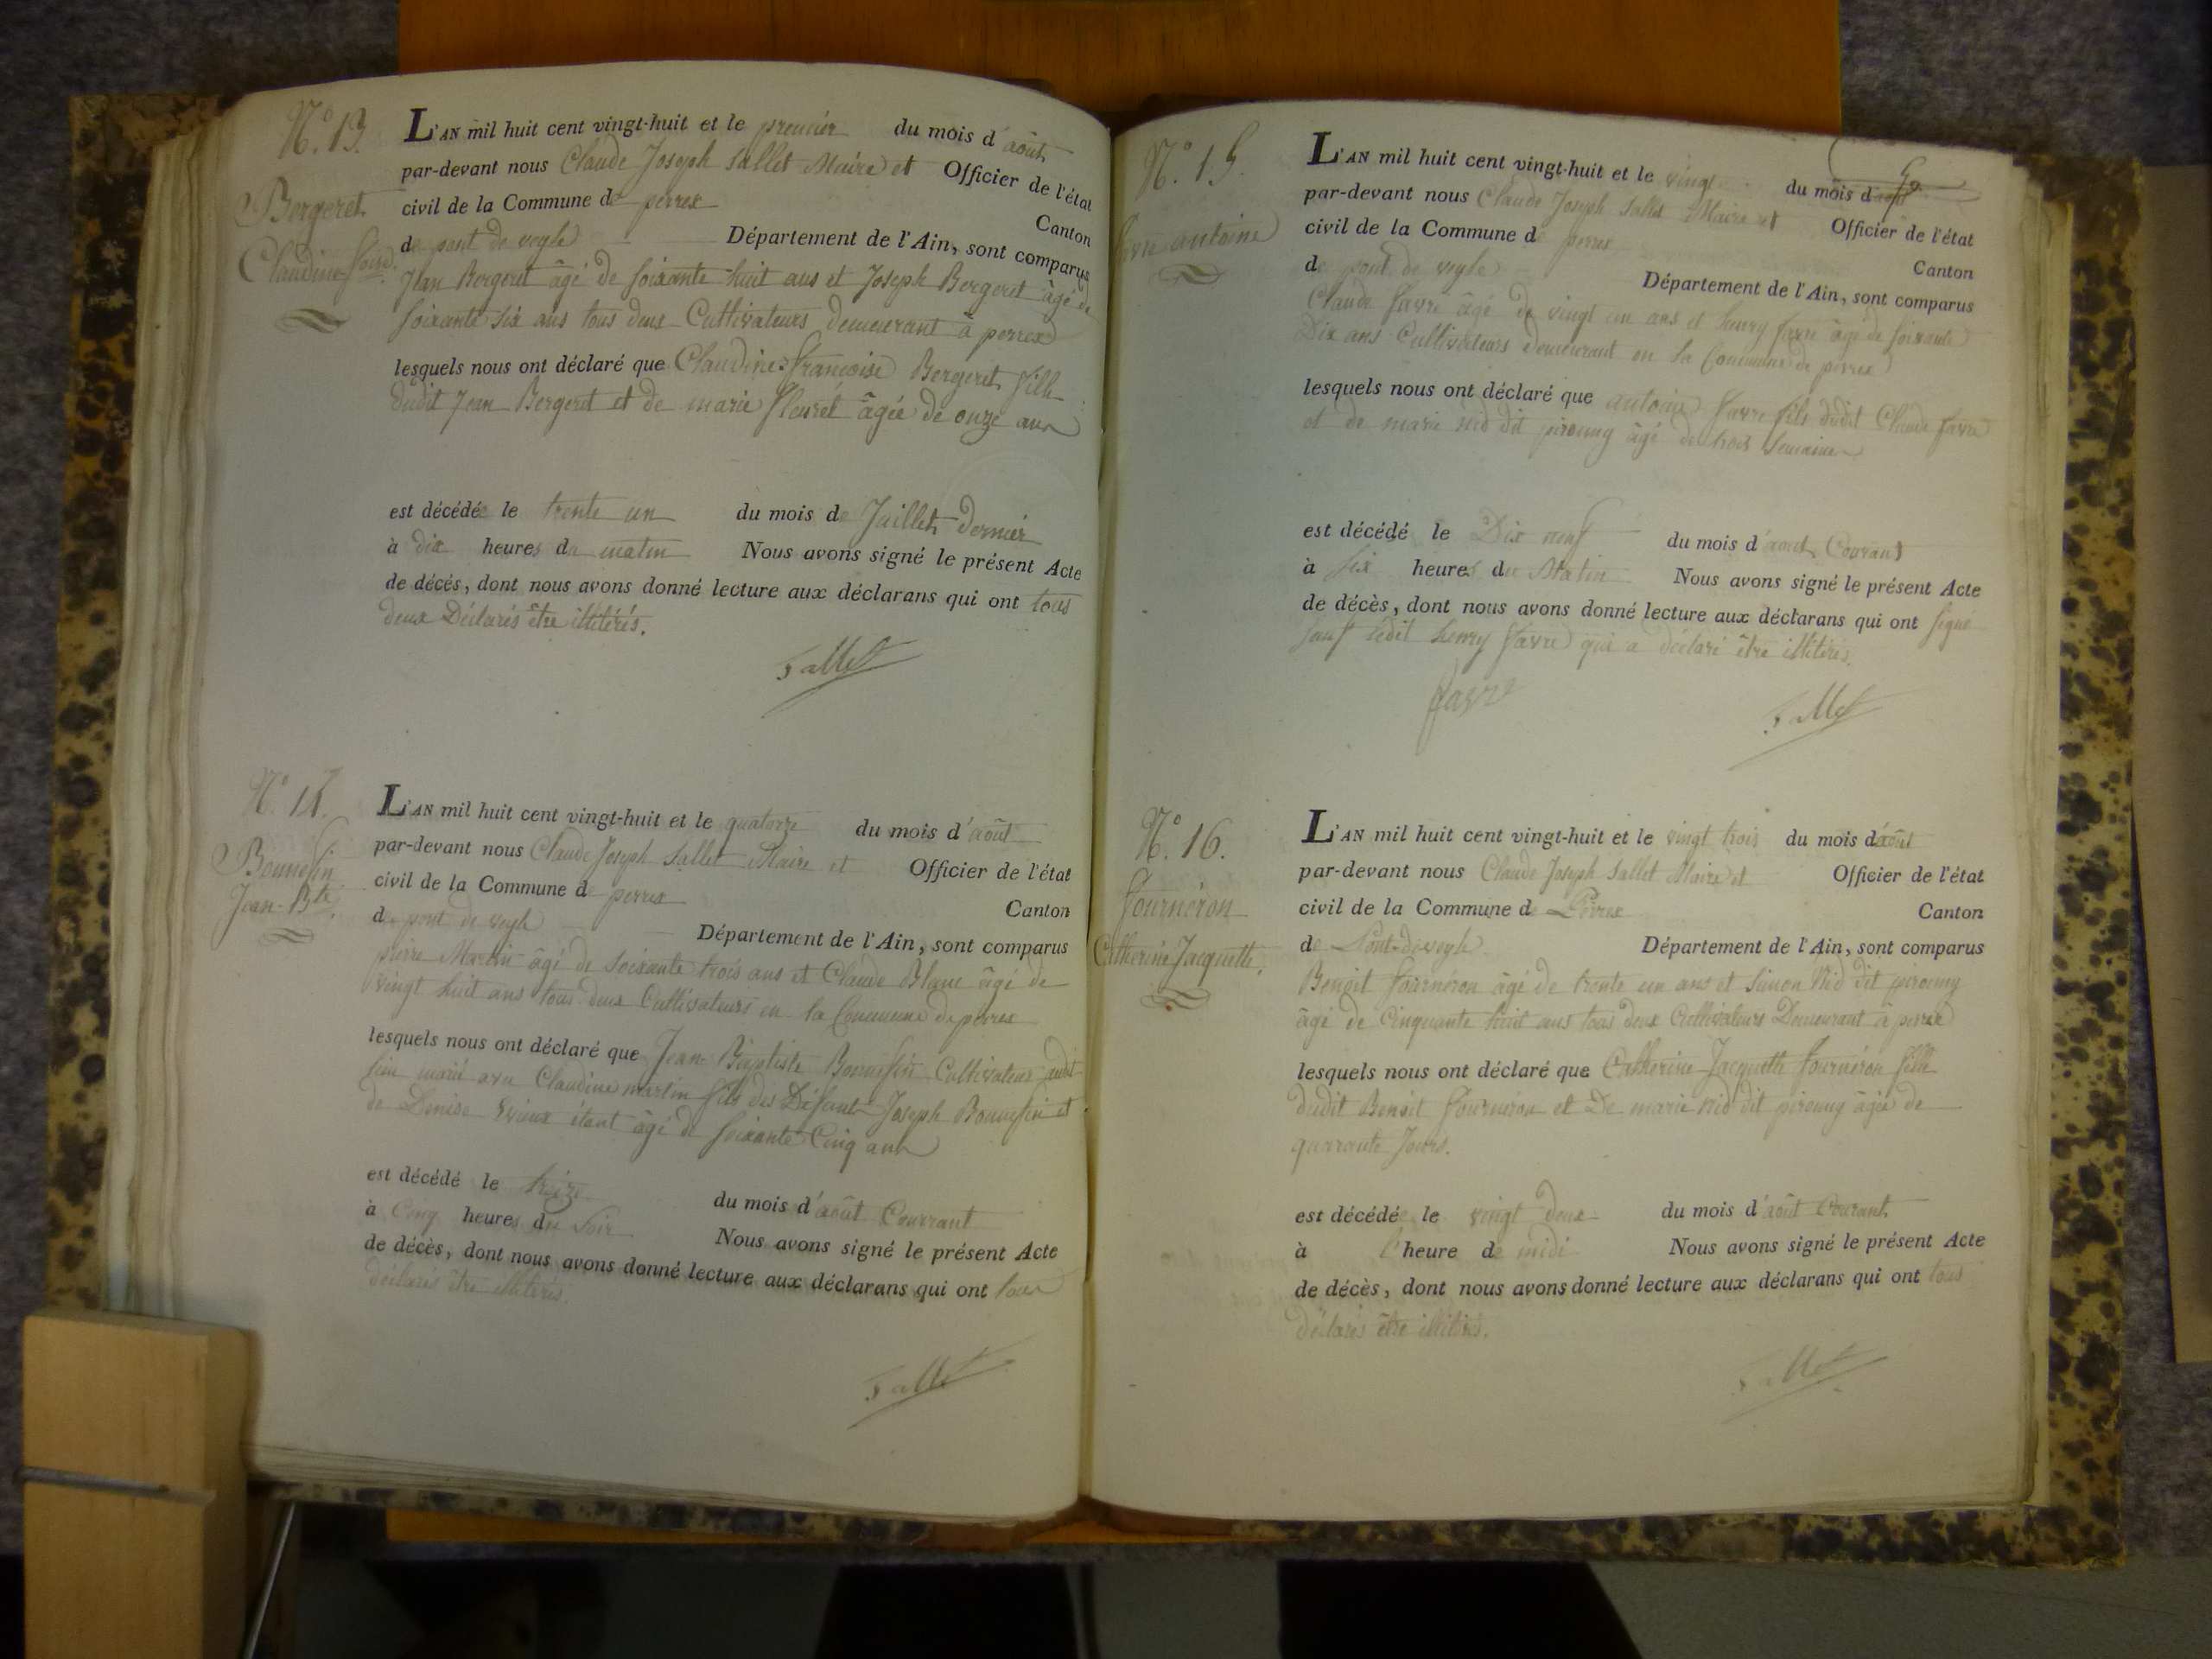 N.° 13.
Bergeret
Claudine foise.
L'AN mil huit cent vingt-huit et le premier du mois d'août
par-devant nous Claude Joseph Sallet Maire et Officier de l'état
civil de la Commune de perrex Canton
de pont de veyle Département de l'Ain, sont comparus
Jean Bergeret âgé de soixante huit ans et Joseph Bergeret âgé de
soixante six ans tous deux Cultivateurs demeurant à perrex
lesquels nous ont déclaré que Claudine françoise Bergeret fille
dudit Jean Bergeret et de marie fleuret âgée de onze ans
est décédée le trente un du mois de Juillet dernier
à dix heures du matin Nous avons signé le présent Acte
de décès, dont nous avons donné lecture aux déclarans qui ont tous
deux Déclarés être illitérés.
Sallet
N.° 14.
Bonnefin
Jean-Bte.
L'AN mil huit cent vingt-huit et le quatorze du mois d'août
par-devant nous Claude Joseph Sallet Maire et Officier de l'état
civil de la Commune de perrex Canton
de pont de veyle Département de l'Ain, sont comparus
pierre Martin âgé de soixante trois ans et Claude Blanc âgé de
vingt huit ans tous deux Cultivateurs en la Commune de perrex
lesquels nous ont déclaré que Jean-Baptiste Bonnefin Cultivateur audit
lieu marié avec Claudine martin fils des Défunts Joseph Bonnefin et
de Denise étant âgé de soixante Cinq ans
est décédé le treize du mois d'août Courrant
à Cinq heures du Soir Nous avons signé le présent Acte
de décès, dont nous avons donné lecture aux déclarans qui ont tous
déclarés être illitérés.
Sallet
N.° 15.
favre antoine
L'AN mil huit cent vingt-huit et le vingt du mois d'août
par-devant nous Claude Joseph Sallet Maire et Officier de l'état
civil de la Commune de perrex Canton
de pont de veyle Département de l'Ain, sont comparus
Claude favre âgé de vingt un ans et henry favre âgé de soixante
Dix ans Cultivateurs demeurant en la Commune de perrex
lesquels nous ont déclaré que antoine favre fils dudit Claude favre
et de marie nid dit pirouny âgé de trois semaines
est décédé le Dix neuf du mois d'août Courant
à six heures du Matin Nous avons signé le présent Acte
de décès, dont nous avons donné lecture aux déclarans qui ont signé
sauf ledit henry favre qui a déclaré être illitérés.
favre
Sallet
N.° 16.
fournéron
Catherine Jacquette.
L'AN mil huit cent vingt-huit et le vingt trois du mois d'août
par-devant nous Claude Joseph Sallet Maire et Officier de l'état
civil de la Commune de Perrex Canton
de Pont-de-veyle Département de l'Ain, sont comparus
Benoit fournéron âgé de trente un ans et Simon Nid dit pirouny
âgé de Cinquante huit ans tous deux Cultivateurs Demeurant à perrex
lesquels nous ont déclaré que Catherine Jacquette fournéron fille
dudit Benoit fournéron et De marie Nid dit pirouny âgée de
quarrante Jours.
est décédée le vingt deux du mois d'août Courant.
à l'heure de midi Nous avons signé le présent Acte
de décès, dont nous avons donné lecture aux déclarans qui ont tous
Déclarés être illitérés.
Sallet